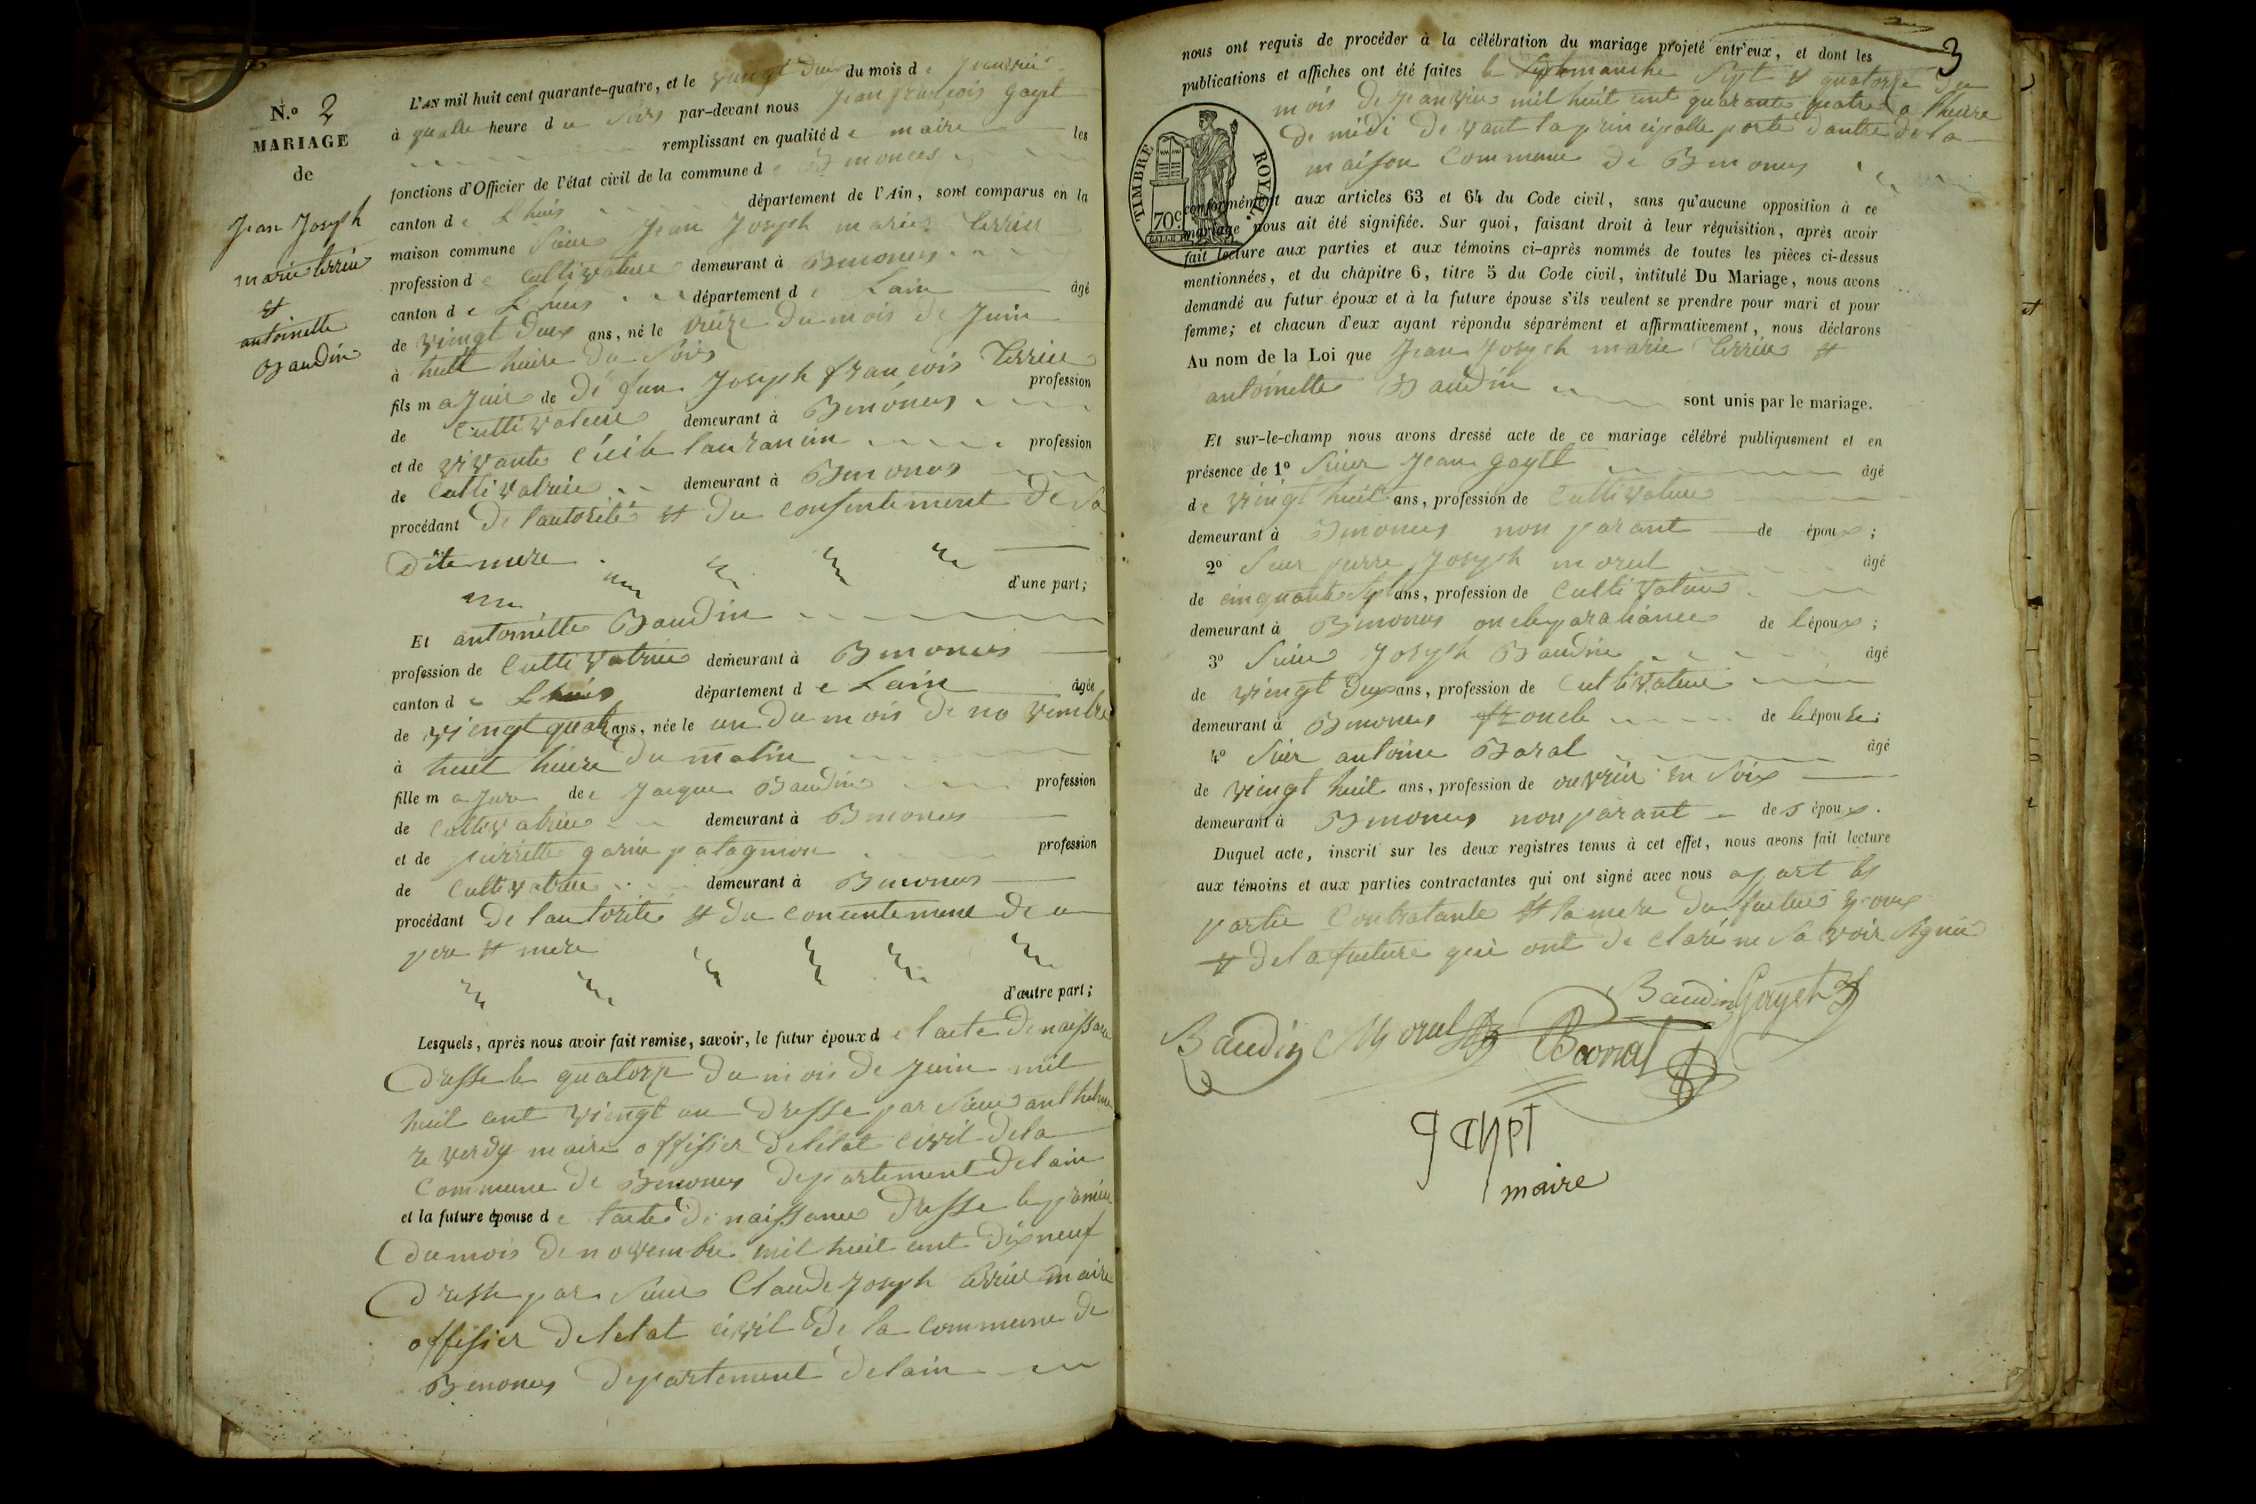 N.º 2
MARIAGE
de
Jean Joseph
marie terrier
et
antoinette
Baudin
L'AN mil huit cent quarante-quatre, et le vingt deux du mois de janvier
à quatre heure du soirs par-devant nous jean françois gayet
remplissant en qualité de maire les
fonctions d'Officier de l'état civil de la commune de Bénonces
canton de Lhuis département de l'Ain, sont comparus en la
maison commune sieur Jean Joseph marie terrier
profession de Cultivateur demeurant à Bénonces
canton de Lhuis département de Lain âgé
de vingt deux ans, né le treize du mois de Juin
à huit heure du soirs
fils majeur de défun Joseph françois terrier profession
de Cultivateur demeurant à Bénonces
et de vivante Cécile profession
de Cultivatrice demeurant à Bénonces
procédant de l'autorité et du consentement de sa
dite mere
d'une part;
Et antoinette Baudin
profession de Cultivatrice demeurant à Bénonces
canton de Lhuis département de Lain âgée
de vingt quatre ans, née le un du mois de novembre
à huit heure du matin
fille majeure de Jacque Baudin profession
de Cultivateur demeurant à Bénonces
et de pierrette profession
de Cultivatrice demeurant à Bénonces
procédant de l'autorité et du consentement de ce
pere et mere
d'autre part;
Lesquels, après nous avoir fait remise, savoir, le futur époux de l'acte de naissance
dresse le quatorze du mois de Juin mil
huit cent vingt un dresse par sieur anthelme
reverdy maire offisier de l'état civil de la
Commune de Bénonces département de lain
et la future épouse de l'acte de naissance dresse le premier
du mois de novembre mil huit cent dix neuf
dresse par sieur Claude Joseph terrier maire
offisier de l'etat civil de la commune de
Bénonces département de lain
3
nous ont requis de procéder à la célébration du mariage projeté entr'eux, et dont les
publications et affiches ont été faites le dimanche sept et quatorze du
mois de janvier mil huit cent quarante quatre a l'heure
de midi devant la principalle porte d'antrée de la
maison Commune de Bénonces
TIMBRE ROYAL.
70 c.
conformément aux articles 63 et 64 du Code civil, sans qu'aucune opposition à ce
mariage nous ait été signifiée. Sur quoi, faisant droit à leur réquisition, après avoir
fait lecture aux parties et aux témoins ci-après nommés de toutes les pièces ci-dessus
mentionnées, et du chapitre 6, titre 5 du Code civil, intitulé Du Mariage, nous avons
demandé au futur époux et à la future épouse s'ils veulent se prendre pour mari et pour
femme; et chacun d'eux ayant répondu séparément et affirmativement, nous déclarons
Au nom de la Loi que Jean Joseph marie terrier et
antoinette Baudin sont unis par le mariage.
Et sur-le-champ nous avons dressé acte de ce mariage célébré publiquement et en
présence de 1º sieur Jean gayet âgé
de vingt huit ans, profession de Cultivateur
demeurant à Bénonces non parant de époux;
2º sieur pierre Joseph morel âgé
de cinquante sept ans, profession de Cultivateur
demeurant à Bénonces oncle par aliance de l'époux;
3º sieur Joseph Baudin âgé
de vingt deux ans, profession de Cultivateur
demeurant à Bénonces oncle de lépouse;
4º sieur antoine Baral âgé
de vingt huit ans, profession de ouvrier en soix
demeurant à Bénonces non parant des époux.
Duquel acte, inscrit sur les deux registres tenus à cet effet, nous avons fait lecture
aux témoins et aux parties contractantes qui ont signé avec nous apart les
partie Contratante et la mere du futur époux
et de la future qui ont de claré ne savoir signier
Baudin Gayet
Baudin Morel Barral
gayet
maire